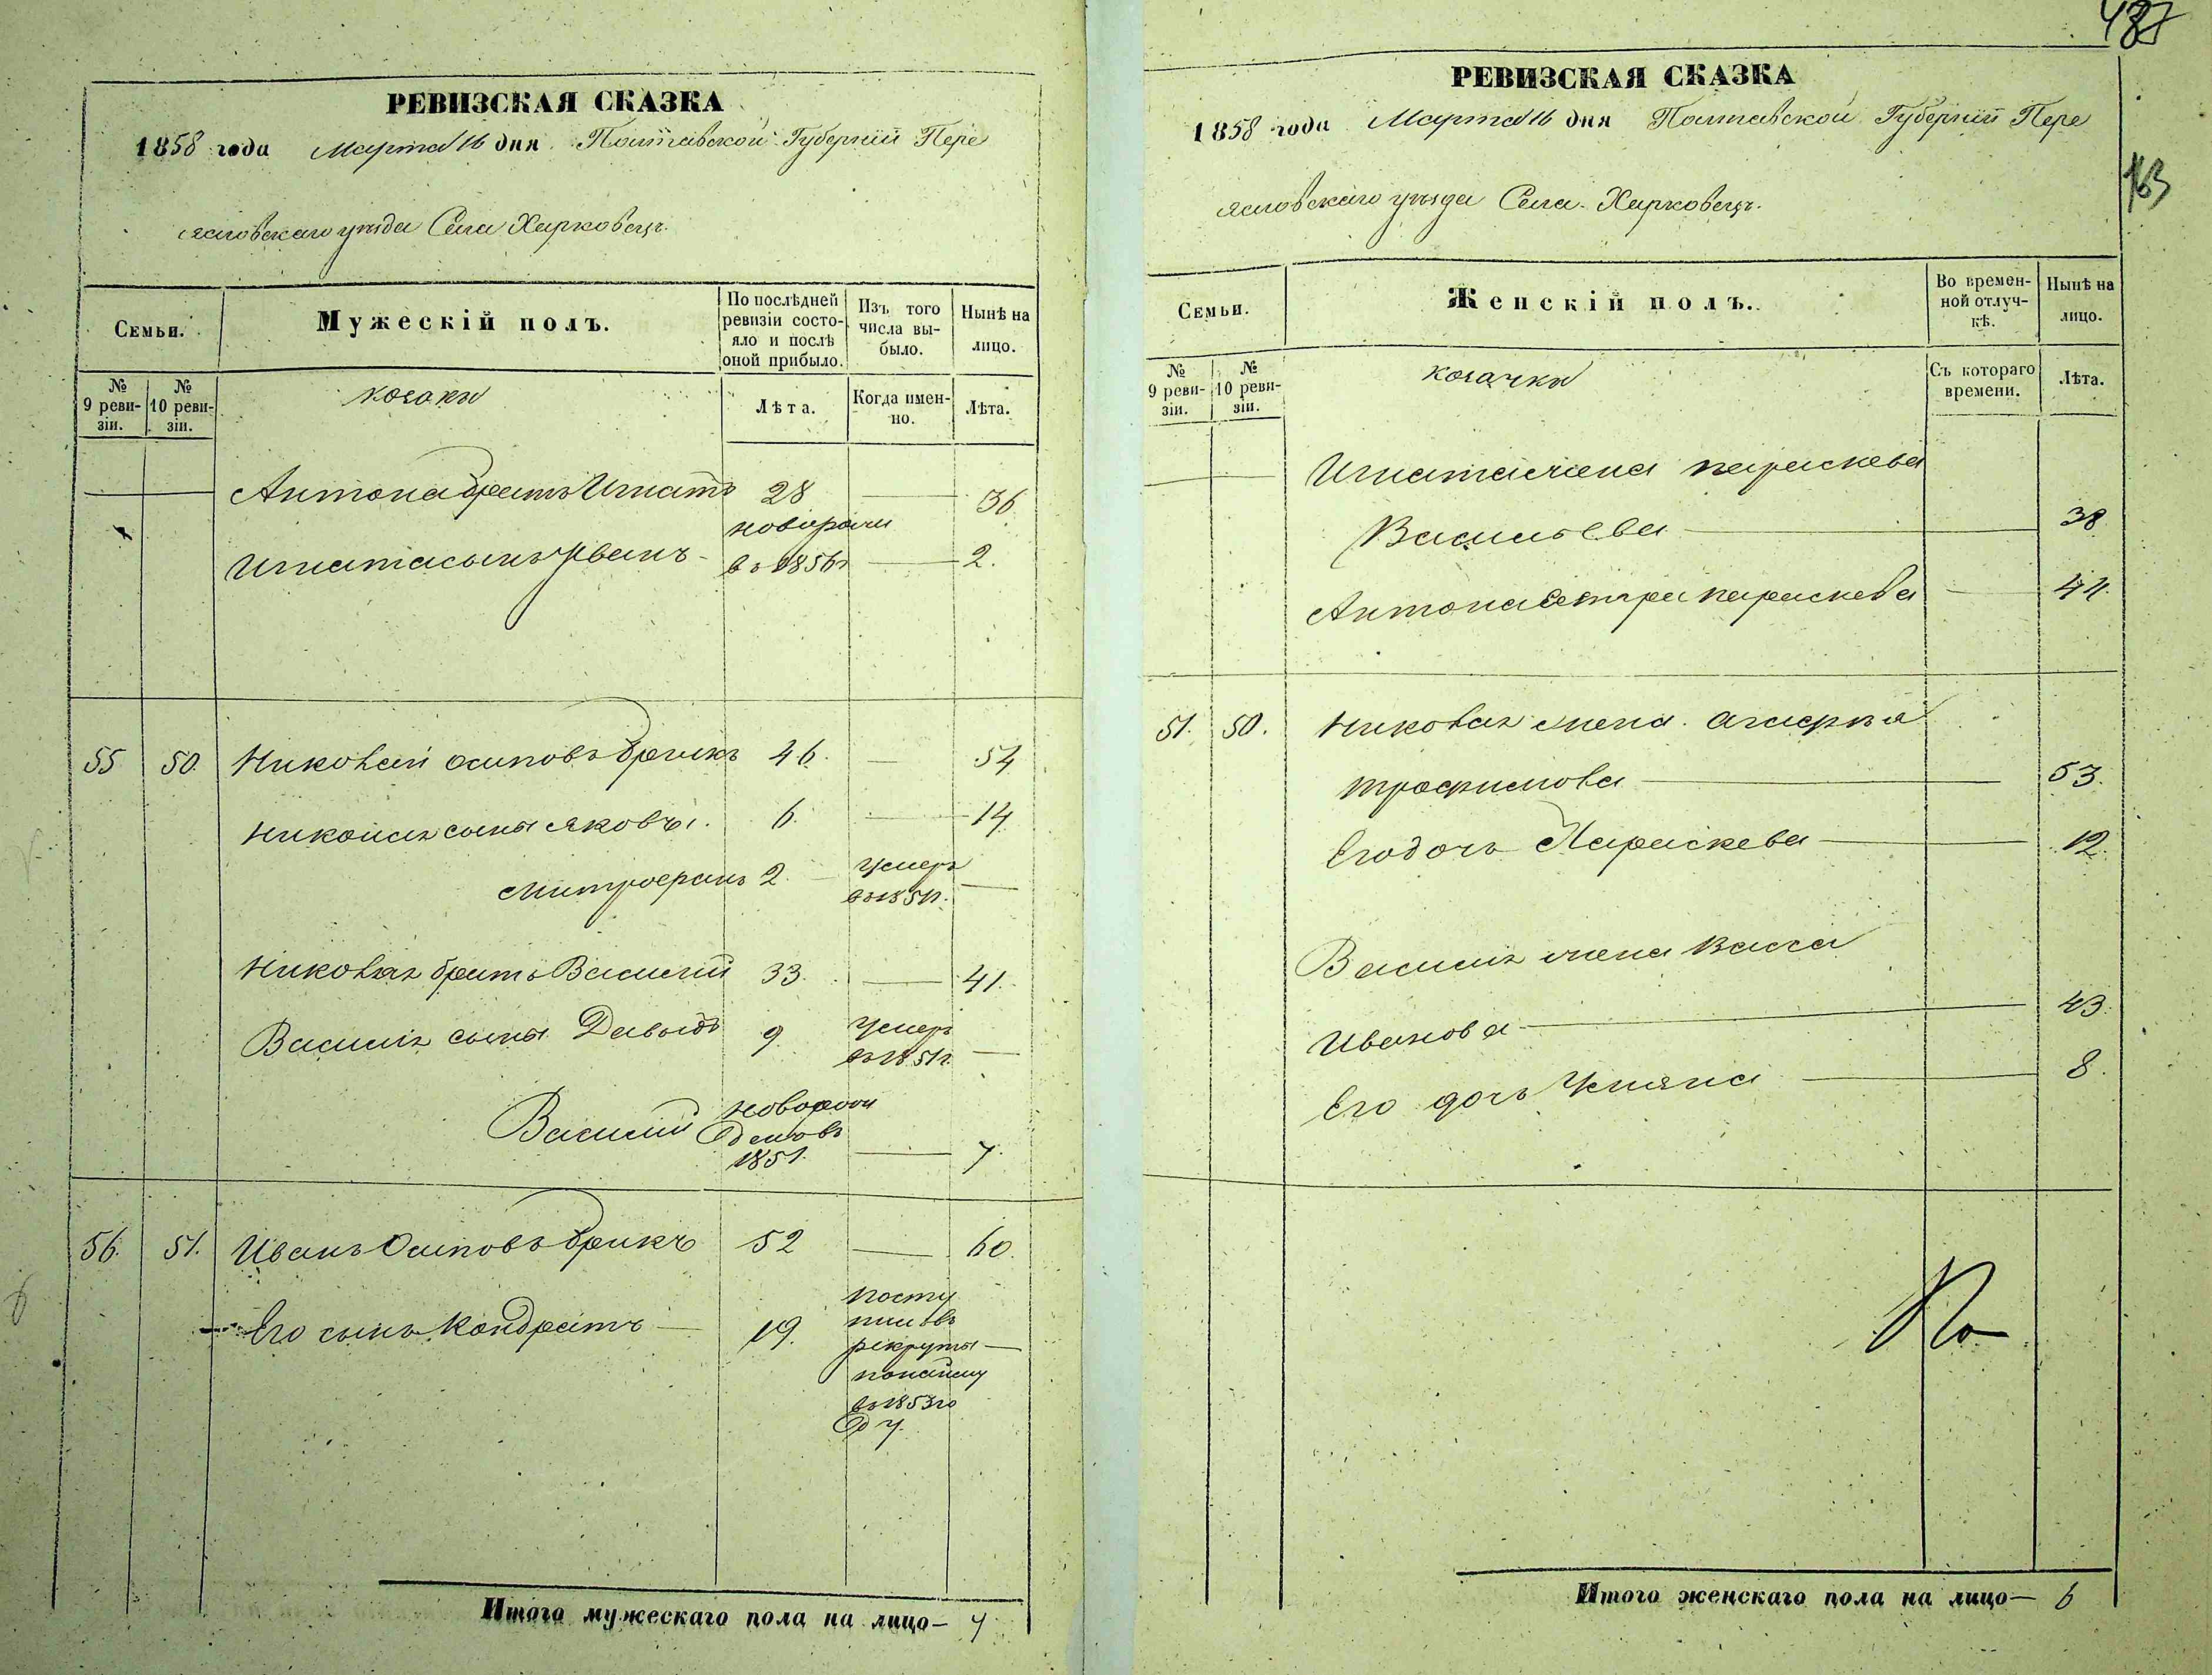 РЕВИЗСКАЯ СКАЗКА
1858 года Марта 16 дня Полтавской Губерніи Пере
яславскаго уѣзда Села Харковецъ.
Семьи.
Мужескій полъ.
По послѣдней ревизіи состояло и послѣ оной прибыло.
Изъ того числа выбыло.
Нынѣ на лицо.
№ 9 ревизіи.
№ 10 ревизіи.
козаки
Лѣта.
Когда именно.
Лѣта.
Антона братъ Игнатъ 28 — 36
Игната сынъ Иванъ новорожи въ 1856г — 2.
55 50. Николай Осиповъ Брикъ 46. — 54
Николая сыны Яковъ 1. 6. — 14
Митрофанъ 2. умеръ в 1851г. —
Николая братъ Василий 33. — 41.
Василия сыны Давыдъ 9 умеръ въ 1851г. —
Василий новорож 1851. — 7.
56. 51. Иванъ Осиповъ Брикъ 52 — 60.
Его сынъ Кондратъ — 19. посту
пилъ въ
рекруты —
понайму
въ 1853 го
ду.
Итого мужескаго пола на лицо — 7
487
163
РЕВИЗСКАЯ СКАЗКА
1858 года Марта 16 дня Полтавской Губерніи Пере
яславскаго уѣзда Села Харковецъ.
Семьи.
Женскій полъ.
Во временной отлучкѣ.
Нынѣ на лицо.
№ 9 ревизіи.
№ 10 ревизіи.
козачки
Съ котораго времени.
Лѣта.
Игната жена параскева
Васильева — 38
Антона сестра параскева — 44.
51. 50. Николая жена Агафия
трофимова — 53.
Его дочь Параскева — 12.
Василия жена Васса
Иванова — 43.
Его дочь Ульяна — 8.
По
Итого женскаго пола на лицо — 6